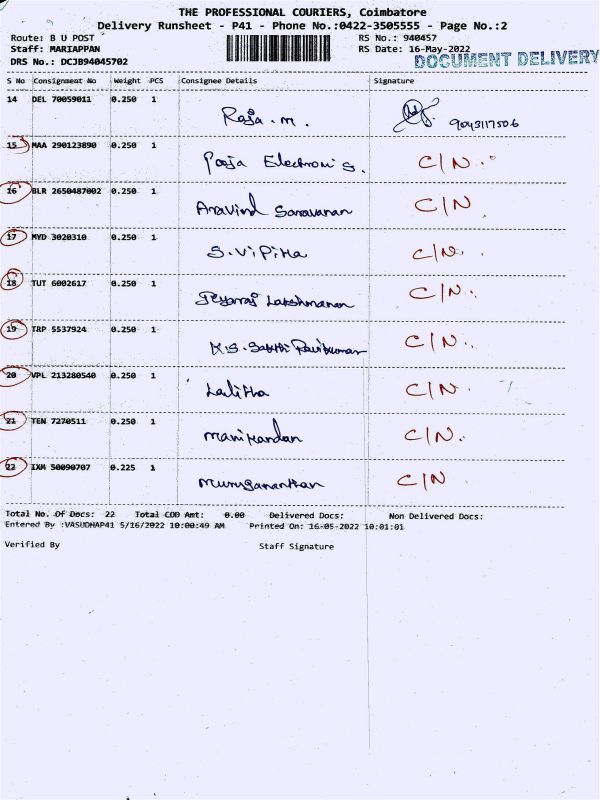 THE PROFESSIONAL COURIERS, Coimbatore
Delivery Runsheet - P41 - Phone No.:0422-3505555 - Page No.:2
Route: B U POST RS No.: 940457
Staff: MARIAPPAN RS Date: 16-May-2022
DRS No.: DCJB94045702 DOCUMENT DELIVERY
S No Consignment No Weight PCS Consignee Details Signature
14 DEL 70059011 0.250 1 Raja . m . 9043117506
15 MAA 290123890 0.250 1 Pooja S. C/N.
16 BLR 2650487002 0.250 1 Aravind Saravanan C/N
17 MYD 3020310 0.250 1 S. Vipitha C/N.
18 TUT 6002617 0.250 1 Jeyaraj Lakshmanan C/N.
19 TRP 5537924 0.250 1 K.S. Sakthi Ravikumar C/N.
20 VPL 213280540 0.250 1 Lalitha C/N.
21 TEN 7270511 0.250 1 Manikandan C/N.
22 IXM 50090707 0.225 1 Murugananthan C/N
Total No. Of Docs: 22 Total COD Amt: 0.00 Delivered Docs: Non Delivered Docs:
Entered By :VASUDHAP41 5/16/2022 10:00:49 AM Printed On: 16-05-2022 10:01:01
Verified By Staff Signature